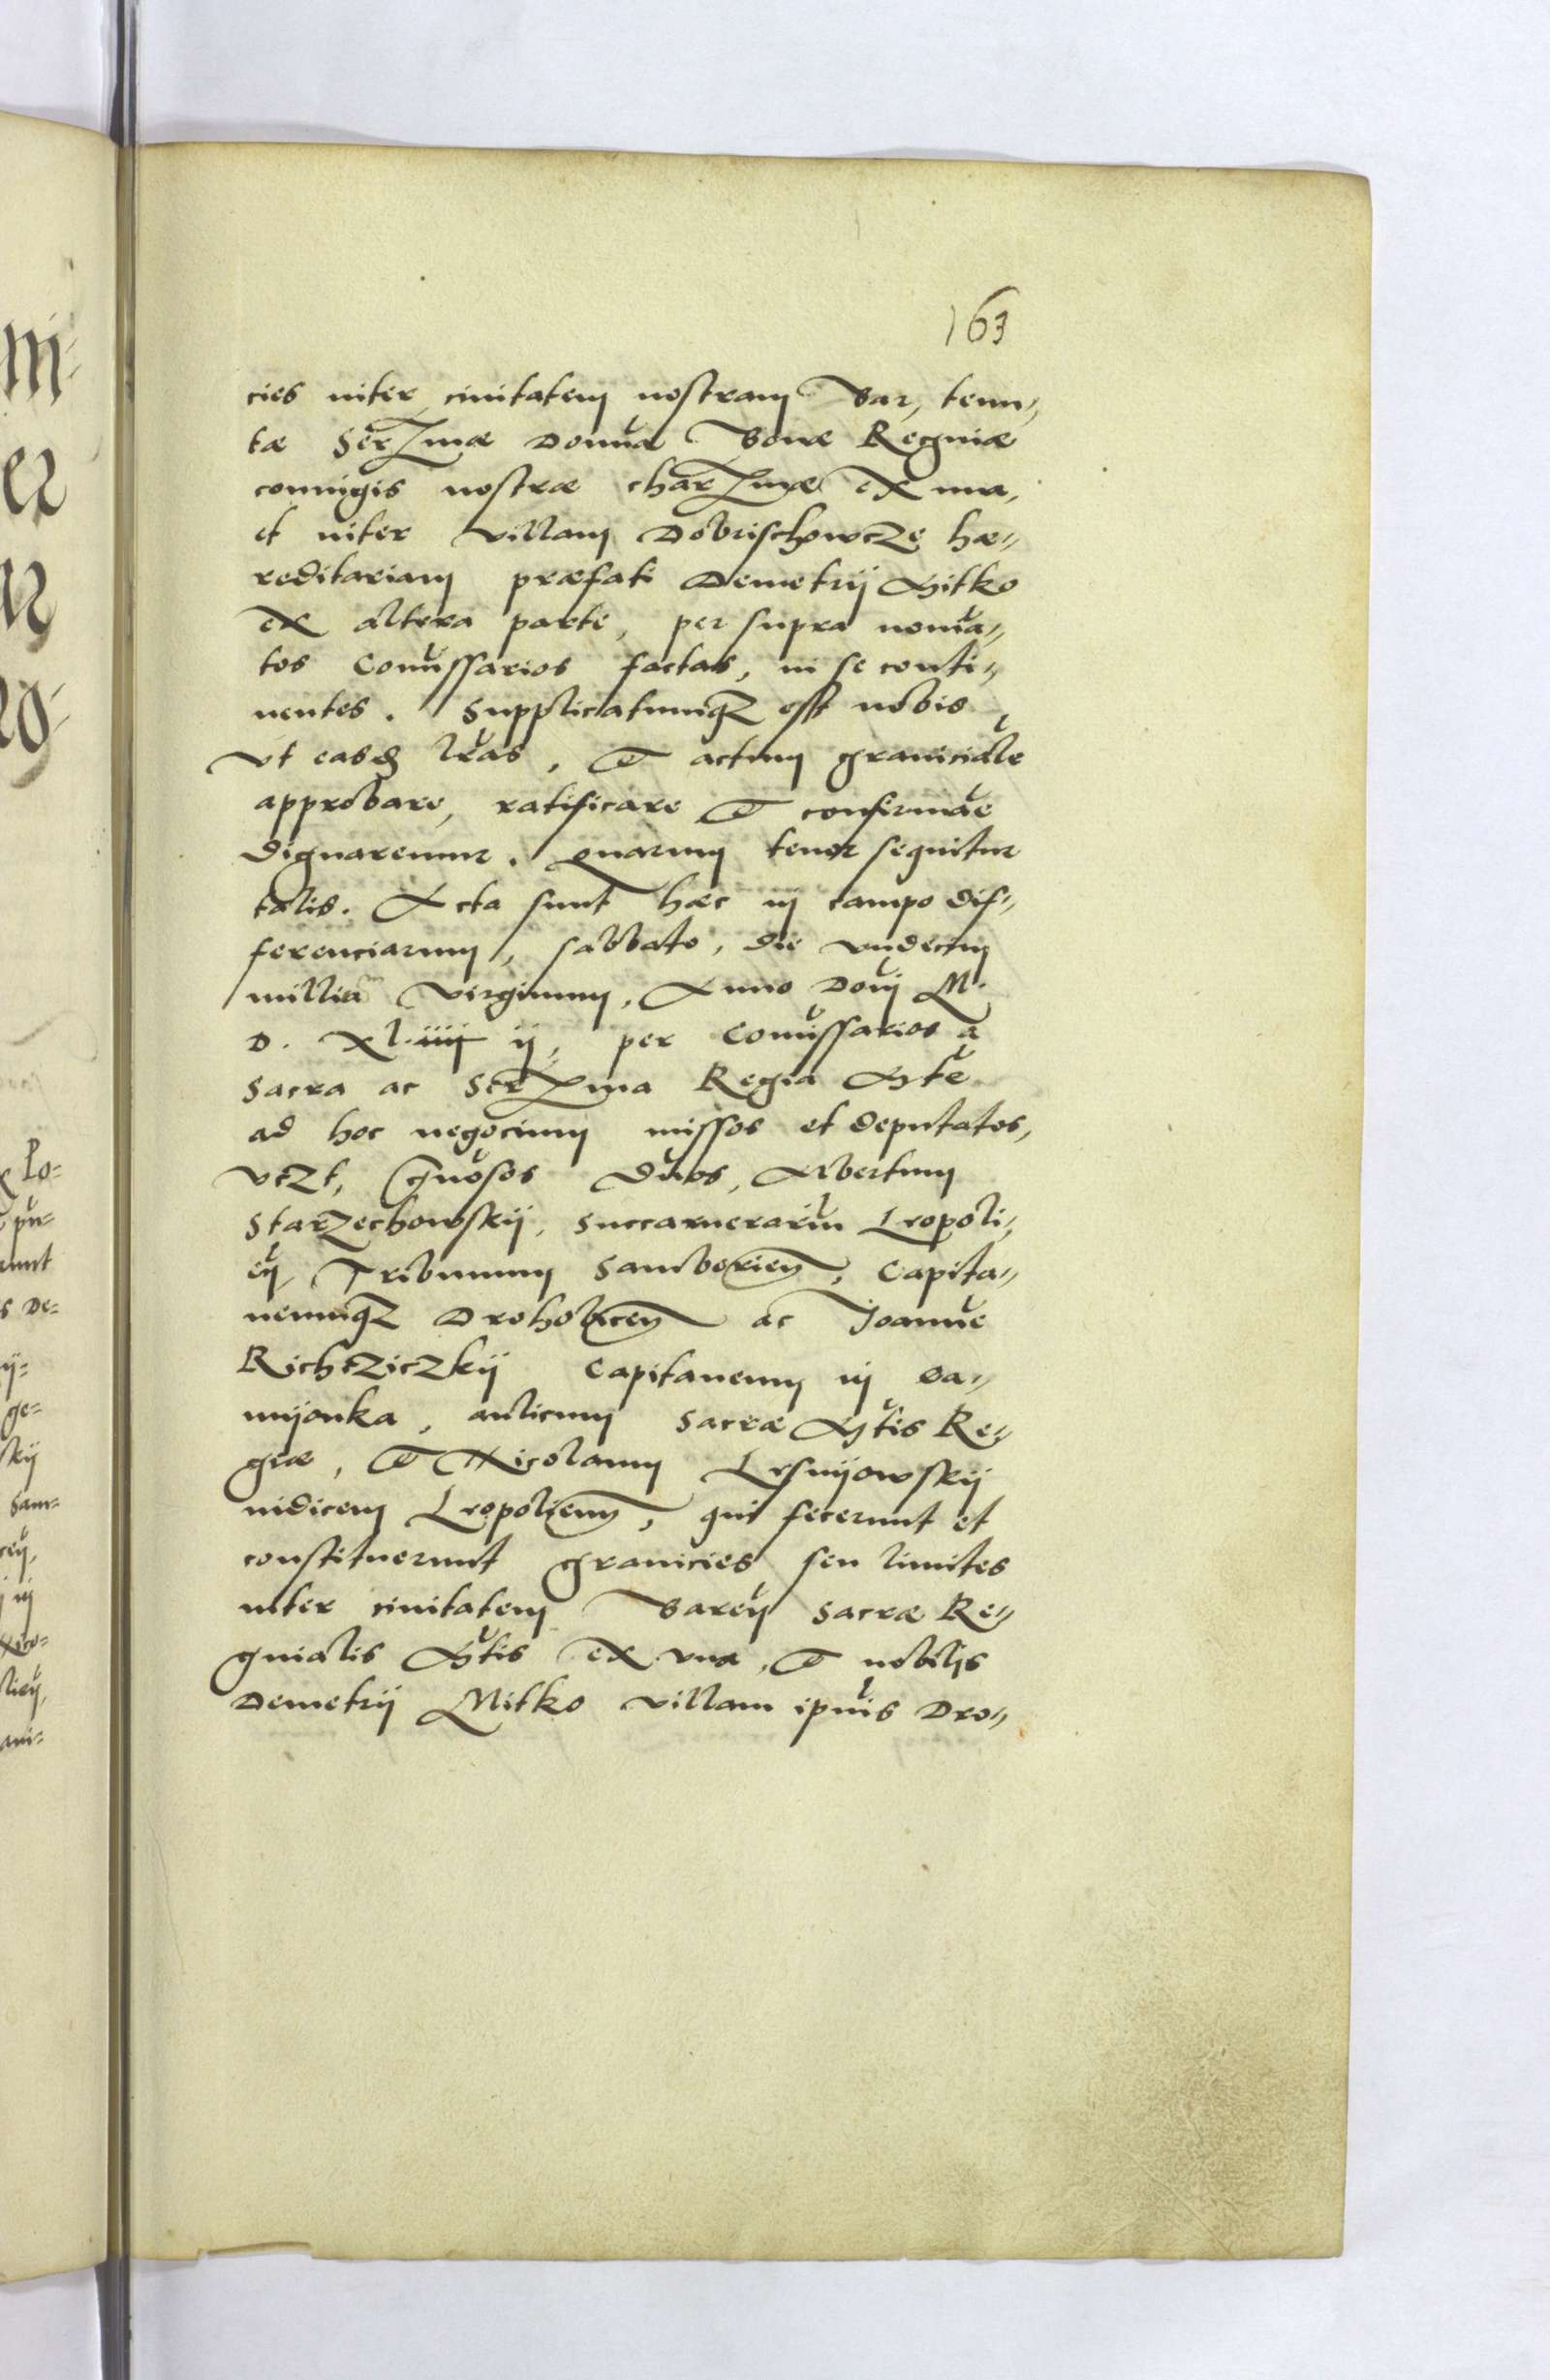 163
cies inter civitatem nostram Bar, tenu„
tæ Serzmæ Domnæ Bonæ Reginæ
coniugis nostræ charzmæ ex una,
et inter villam Dobrischowcze hæ„
reditariam præfati Demetrij Mitko
ex altera parte, per supra nomĭa„
tos Comissarios factas, in se conti„
nentes. Supplicatumqz est nobis
vt easd lr̃as, & actum graniciale
approbare, ratificare & confirmar̃e
dignaremur. Quarum tenor sequitur
talis. Acta sunt hæc in campo dif„
ferenciarum, sabbato, die vndecim
milliam virginum, Anno Domĭ M.
D. xl. iiii ij, per Comissarios a
Sacra ac Serzma Regia Mte
ad hoc negocium missos et deputatos,
vtzt, Gñosos Dños, Albertum
Starzechowskij, Succamerariũ Leopoli„
eñ, Tribunum Samborieñ, Capita„
neumqz Drohobiceñ ac Joanne
Richtziczkij Capitaneum in Ca„
mijonka, aulicum Sacræ Mtis Re„
giæ, & Nicolaum Lesnijowskij
iudicem Leopolieñ, qui fecerunt et
constituerunt granicies seu limites
inter civitatem Bareñ Sacræ Re„
ginalis Mtis ex vna, & nobilis
Demetrij Mitko villam ipĭus Dro„